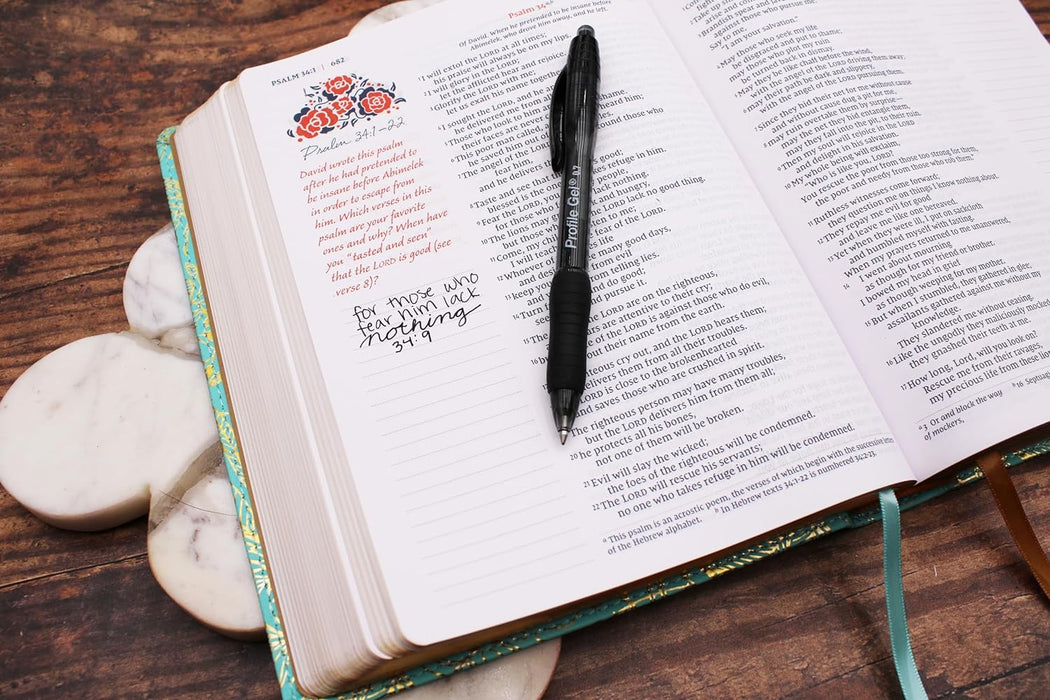 PSALM 34:1 | 682
Psalm 34:1–22
David wrote this psalm
after he had pretended to
be insane before Abimelek
in order to escape from
him. Which verses in this
psalm are your favorite
ones and why? When have
you "tasted and seen"
that the LORD is good (see
verse 8)?
for those who
fear him lack
nothing
34:9
Psalm 34
Of David. When he pretended to be insane before
Abimelek, who drove him away, and he left.
1 I will extol the LORD at all times;
his praise will always be on my lips.
2 I will glory in the LORD;
let the afflicted hear and rejoice.
3 Glorify the LORD with me;
let us exalt his name together.
4 I sought the LORD, and he
he delivered me from
5 Those who look to him are
their faces are never
6 This poor man called, and heard him;
he saved him out of
7 The angel of the LORD around those who
fear him,
and he delivers
8 Taste and see that good;
blessed is the one refuge in him.
9 Fear the LORD, you people,
for those who lack nothing.
10 The lions may hungry,
but those who lack no good thing.
11 Come, my to me;
I will fear of the LORD.
12 Whoever of you
many good days,
13 keep your
from telling lies.
14 Turn
and pursue it.
15 The LORD are on the righteous,
ears are attentive to their cry;
16 LORD is against those who do evil,
out their name from the earth.
cry out, and the LORD hears them;
delivers them from all their troubles.
LORD is close to the brokenhearted
and saves those who are crushed in spirit.
The righteous person may have many troubles,
but the LORD delivers him from them all;
20 he protects all his bones,
not one of them will be broken.
21 Evil will slay the wicked;
the foes of the righteous will be condemned.
22 The LORD will rescue his servants;
no one who takes refuge in him will be condemned.
a This psalm is an acrostic poem, the verses of which begin with the successive letters
of the Hebrew alphabet. b In Hebrew texts 34:1-22 is numbered 34:2-23.
Profile Gel 0.7
against those who pursue me.
Say to me,
"I am your salvation."
4 May those who seek my life
be disgraced and put to shame;
may those who plot my ruin
be turned back in dismay.
5 May they be like chaff before the wind,
with the angel of the LORD driving them away;
6 may their path be dark and slippery,
with the angel of the LORD pursuing them.
7 Since they hid their net for me without cause
and without cause dug a pit for me,
8 may ruin overtake them by surprise—
may the net they hid entangle them,
may they fall into the pit, to their ruin.
9 Then my soul will rejoice in the LORD
and delight in his salvation.
10 My whole being will exclaim,
"Who is like you, LORD?
You rescue the poor from those too strong for them,
the poor and needy from those who rob them."
11 Ruthless witnesses come forward;
they question me on things I know nothing about.
12 They repay me evil for good
and leave me like one bereaved.
13 Yet when they were ill, I put on sackcloth
and humbled myself with fasting.
When my prayers returned to me unanswered,
14 I went about mourning
as though for my friend or brother.
I bowed my head in grief
as though weeping for my mother.
15 But when I stumbled, they gathered in glee;
assailants gathered against me without my
knowledge.
They slandered me without ceasing.
16 Like the ungodly they maliciously mocked
they gnashed their teeth at me.
17 How long, Lord, will you look on?
Rescue me from their ravages,
my precious life from these lions
a 3 Or and block the way b 16 Septuag
of mockers,